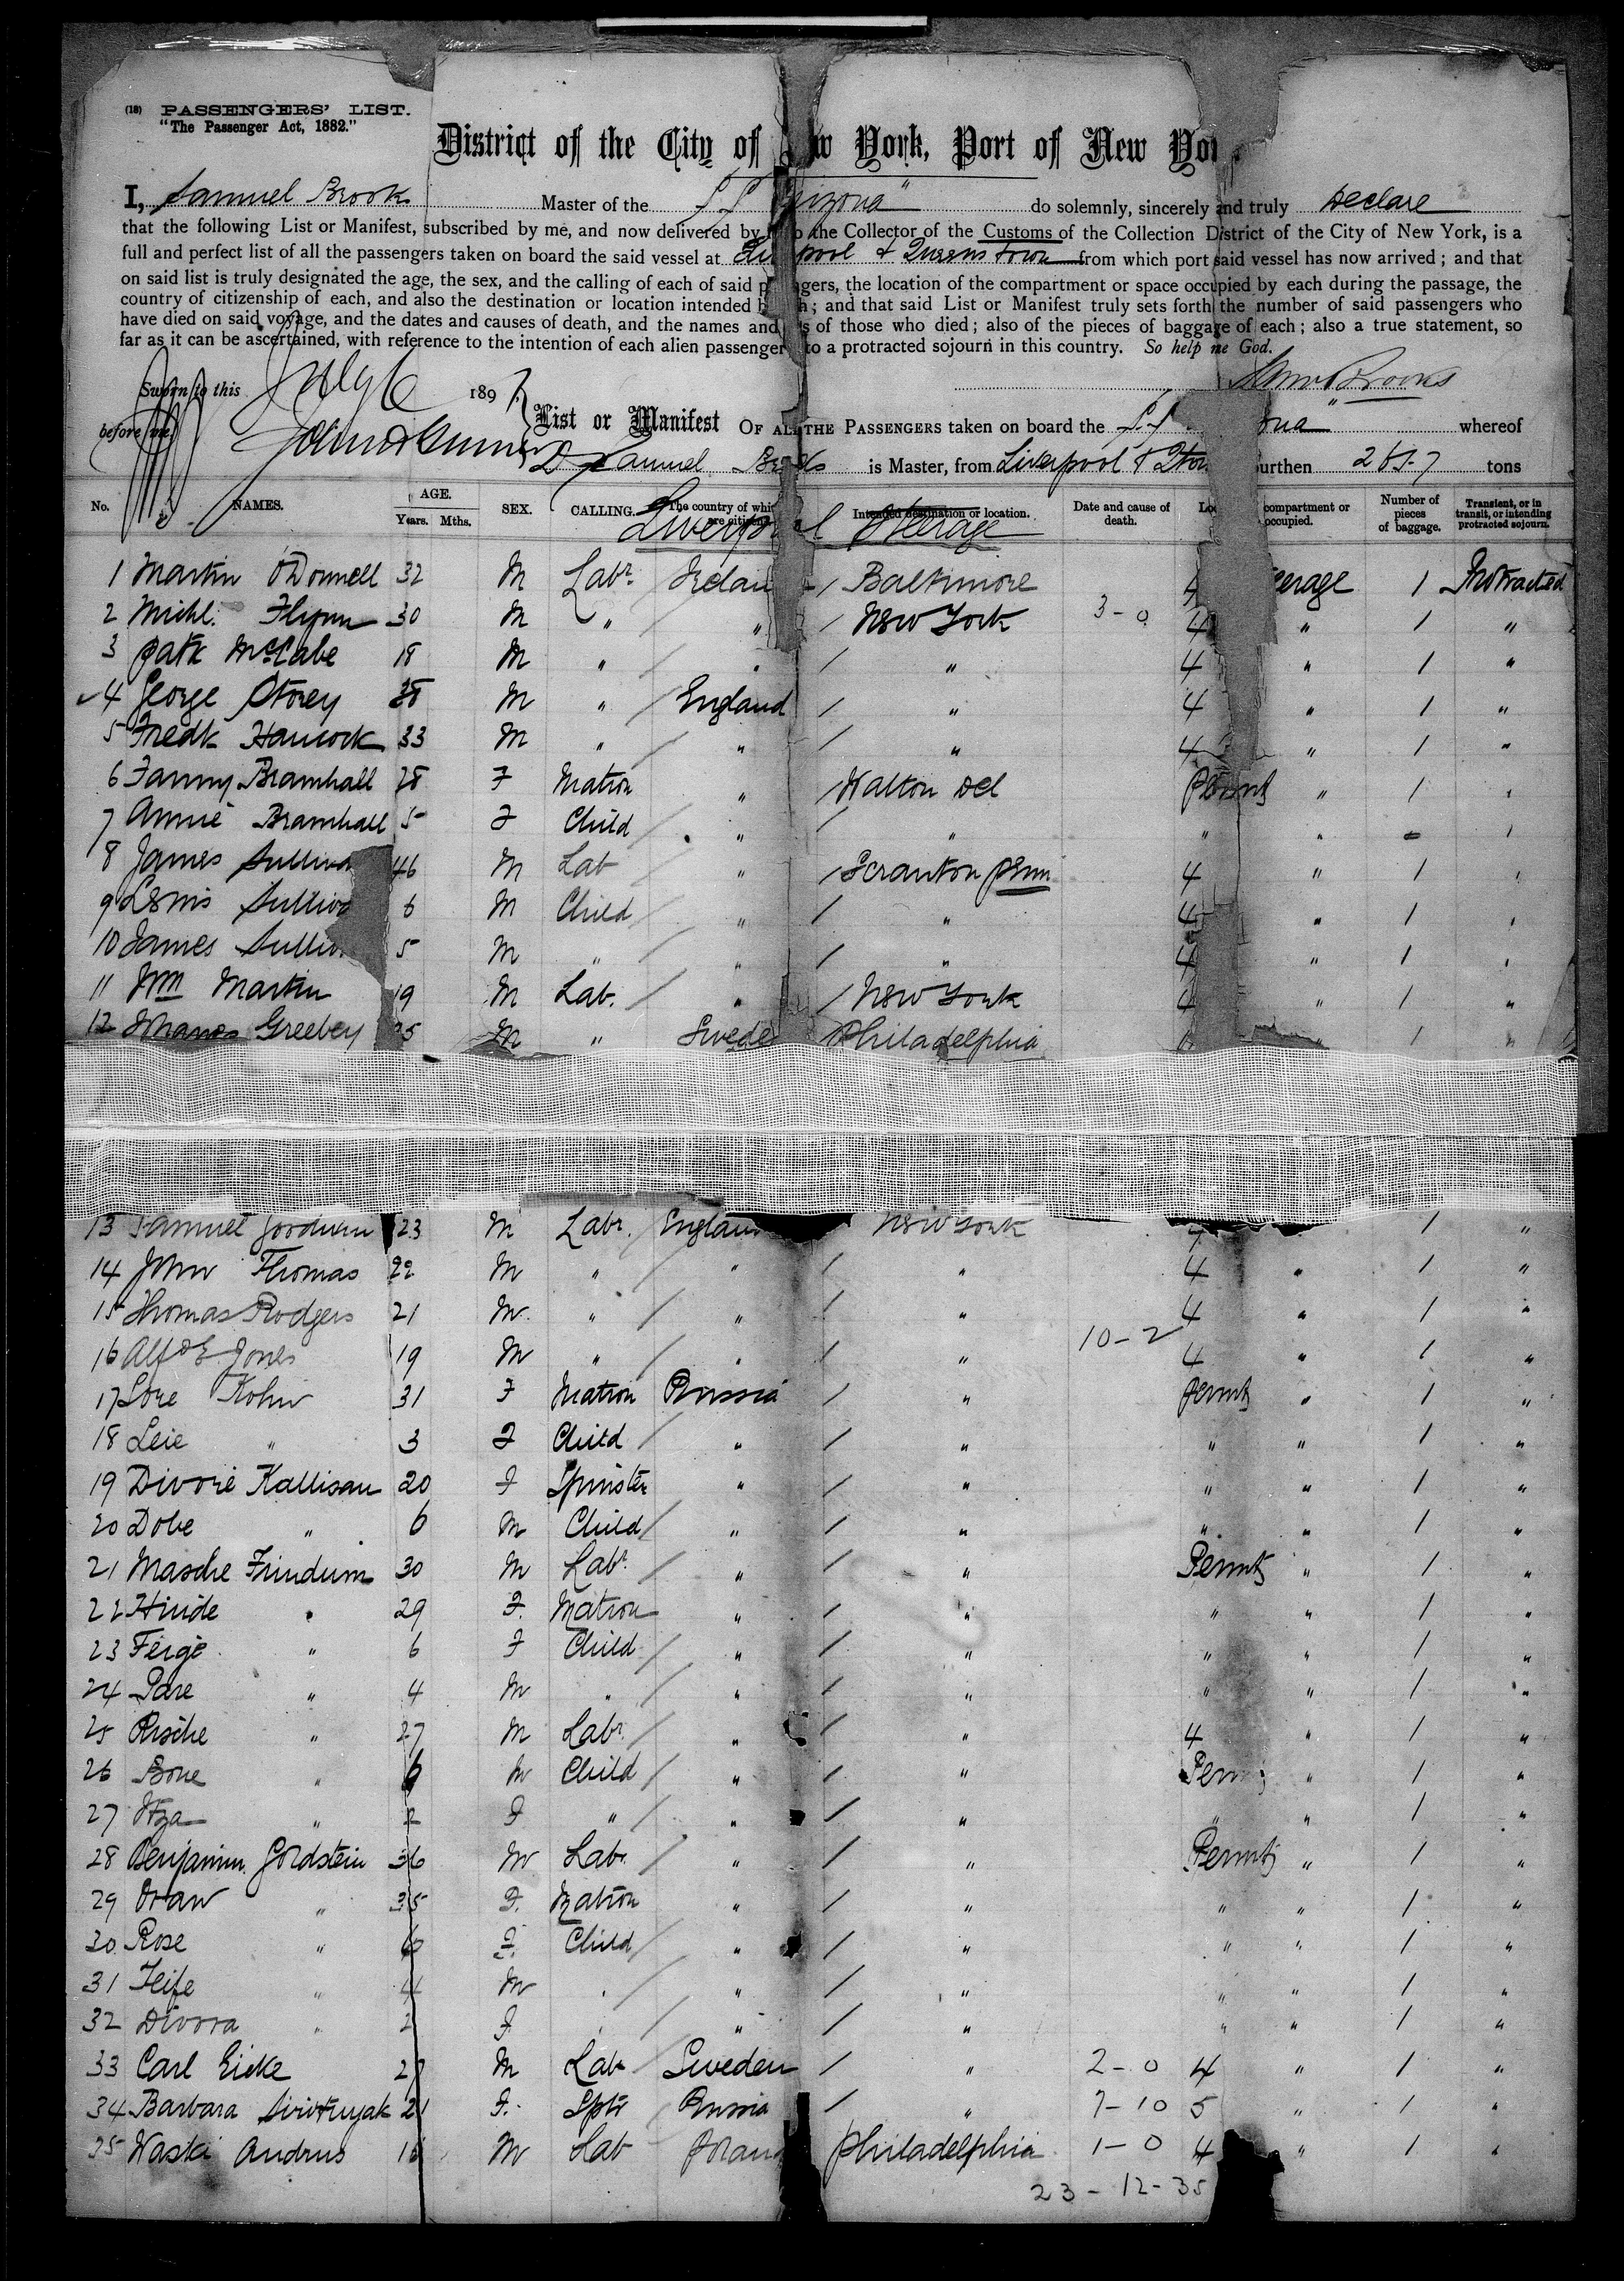 (18) PASSENGERS' LIST.
"The Passenger Act, 1882."
District of the City of w York, Port of New Yor
I, Samuel Brooks Master of the SS "rizona" do solemnly, sincerely and truly Declare
that the following List or Manifest, subscribed by me, and now delivered by o the Collector of the Customs of the Collection District of the City of New York, is a
full and perfect list of all the passengers taken on board the said vessel at Li pool & Queenstown from which port said vessel has now arrived; and that
on said list is truly designated the age, the sex, and the calling of each of said p ngers, the location of the compartment or space occupied by each during the passage, the
country of citizenship of each, and also the destination or location intended b h; and that said List or Manifest truly sets forth the number of said passengers who
have died on said voyage, and the dates and causes of death, and the names and s of those who died; also of the pieces of baggage of each; also a true statement, so
far as it can be ascertained, with reference to the intention of each alien passenger to a protracted sojourn in this country. So help me God.
Sworn to this July 6 189 Brooks
before me
List or Manifest OF ALL THE PASSENGERS taken on board the SS ona" whereof
Samuel Br ks is Master, from Liverpool & Qtow urthen tons
No. NAMES. AGE. Years. Mths. SEX. CALLING. The country of whi are citizens Intended destination or location. Date and cause of death. Lo compartment or occupied. Number of pieces of baggage. Transient, or in transit, or intending protracted sojourn.
Liverpo l Steerage
1 Martin O'Donnell 32 M Labr. Irelan / Baltimore 4 eerage 1 Protracted
2 Michl. Flynn 30 M " " / New York 3-0 4 " 1 "
3 Patk McCabe 18 M " " / " 4 " 1 "
4 George Storey M " England / " 4 " 1 "
5 Fredk Hancock 33 M " " / " 4 " 1 "
6 Fanny Bramhall 28 F Matron " / Walton Del " 1 "
7 Annie Bramhall 5 F Child " / " " " "
8 James Sulliva 46 M Lab " / Scranton Penn 4 " 1 "
9 Sulliva 6 M Child " / " 4 " 1 "
10 James Sulliv 5 M " " / " 4 " 1 "
11 Wm Martin 19 M Lab. " / New York 4 " 1 "
12 Greebey 25 M " Swede Philadelphia " 1 "
13 Samuel 23 M Labr. England New York 4 1 "
14 John Thomas 22 M " " / " 4 " 1 "
15 Thomas Rodgers 21 M " " / " 4 " 1 "
16 Alfd E Jones 19 M " " / " 10-2 4 " 1 "
17 Lore Kohn 31 F Matron Russia / " " 1 "
18 Leie " 3 F Child " / " " " 1 "
19 Divorie Kallisau 20 F Spinster " / " " " 1 "
20 Dobe " 6 M Child " / " " " 1 "
21 Masche 30 M Labr. " / " " 1 "
22 Hinde " 29 F Matron " / " " " 1 "
23 Feige " 6 F Child " / " " " 1 "
24 " 4 M " " / " " " 1 "
25 Rische " 27 M Labr " / " 4 " 1 "
26 Bone " 6 M Child " / " " 1 "
27 Itza " 2 F " " / " " " 1 "
28 Benjamin Goldstein 36 M Labr " / " " 1 "
29 " 35 F. Matron " / " " " 1 "
30 Rose " 6 F. Child " / " " " 1 "
31 " 4 M " " / " " " 1 "
32 Divora " 2 F " " / " " " 1 "
33 Carl Eicke 27 M Lab Sweden / " 2-0 4 " 1 "
34 Barbara 21 F. Sptr Russia / " 7-10 5 " 1 "
35 Waski Andrus M Lab Philadelphia 1-0 4 " 1 "
23-12-35